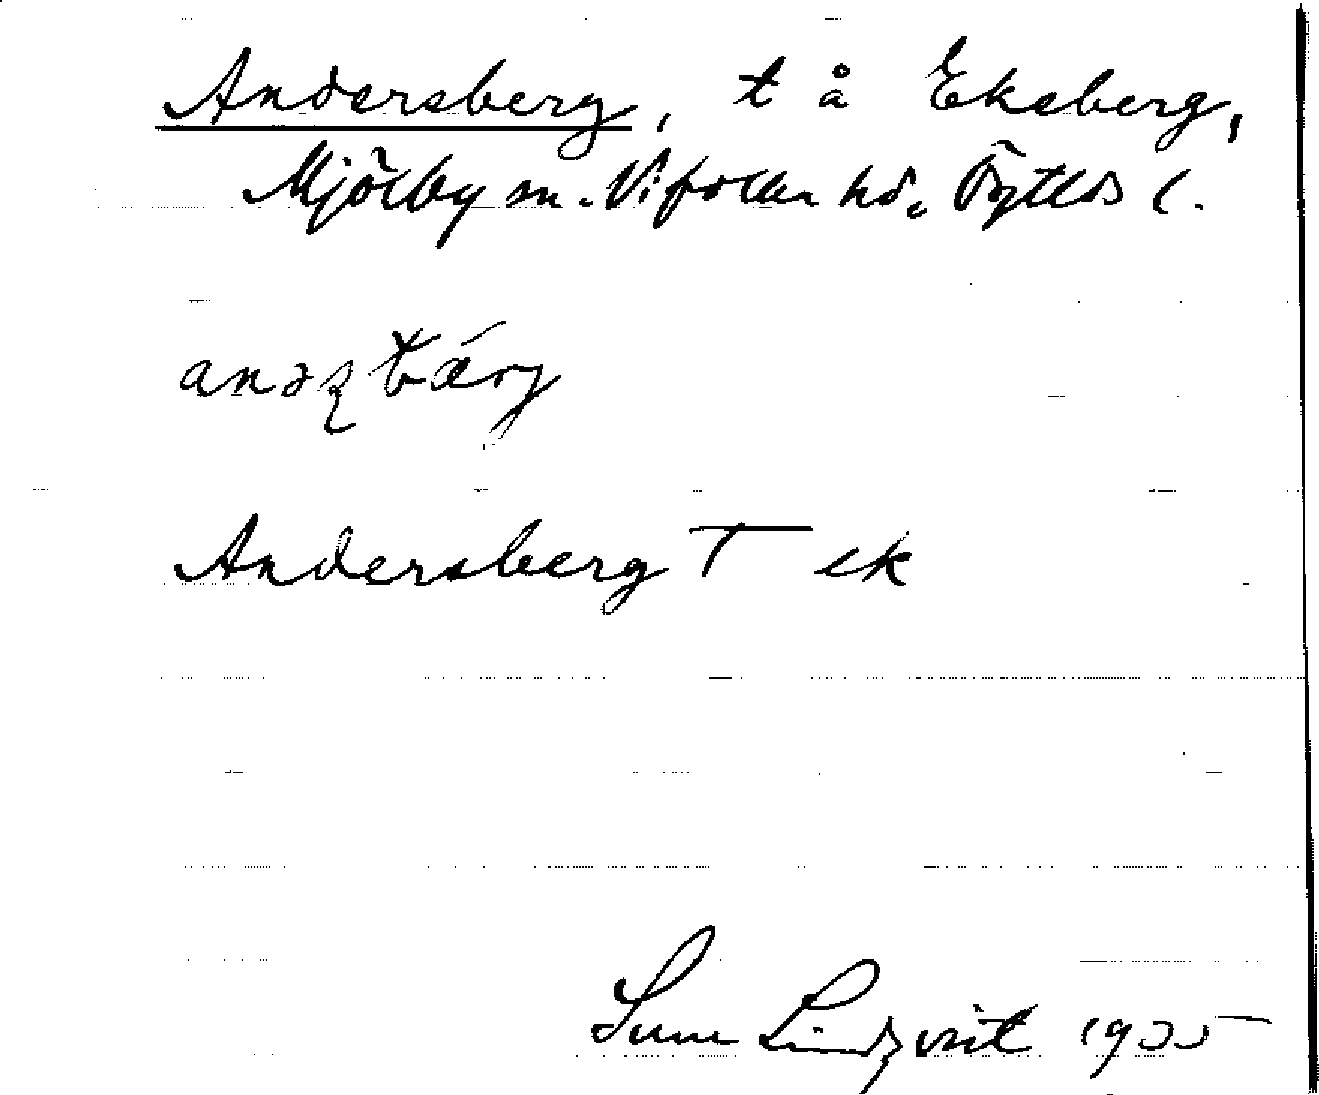 Andersberg, t å Eksberg,
Mjölby sn. Vifolka hd. Östg. l.
Andersberg T ek
Sune Lindqvist 1935